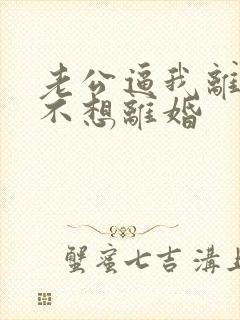 老公逼我離
不想離婚
蟹蜜七吉溝